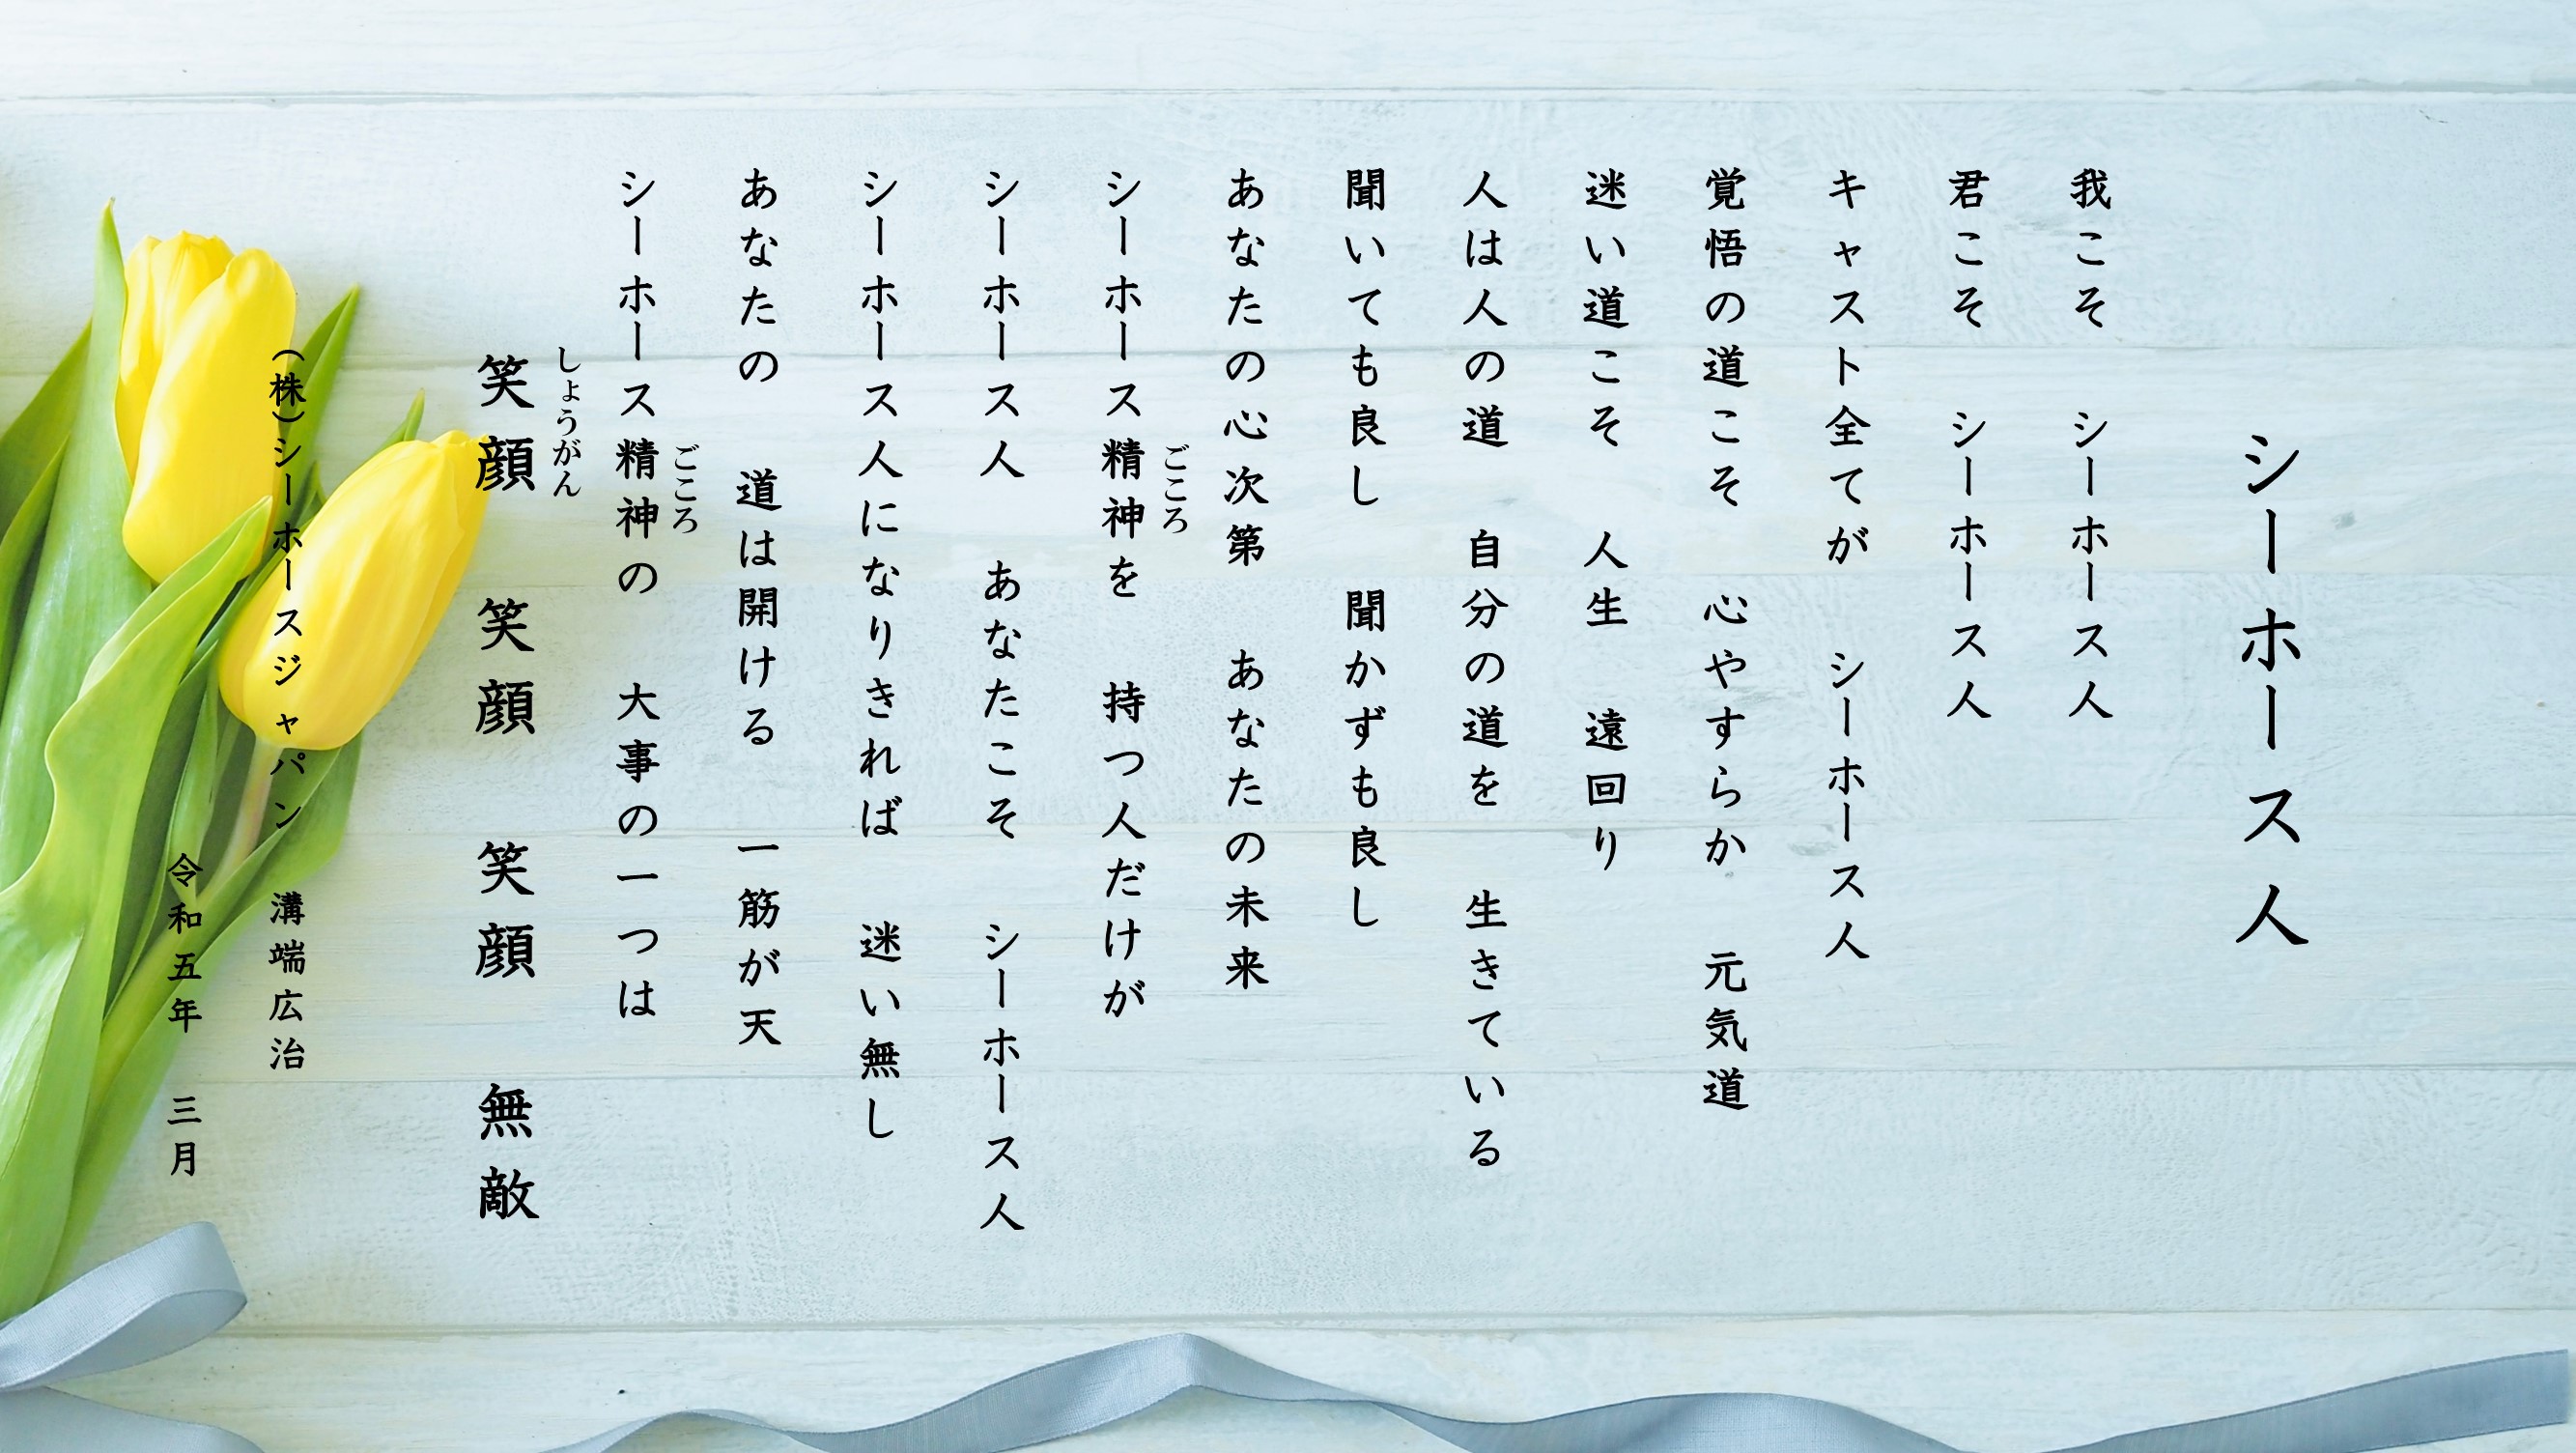 シーホース人
我こそ　シーホース人
君こそ　シーホース人
キャスト全てが　シーホース人
覚悟の道こそ　心やすらか　元気道
迷い道こそ　人生　遠回り
人は人の道　自分の道を　生きている
聞いても良し　聞かずも良し
あなたの心次第　あなたの未来
ごころ
シーホース精神を　持つ人だけが
シーホース人　あなたこそ　シーホース人
シーホース人になりきれば　迷い無し
あなたの　道は開ける　一筋が天
ごころ
シーホース精神の　大事の一つは
しょうがん
笑顔　笑顔　笑顔　無敵
(株)シーホースジャパン　溝端広治
令和五年　三月